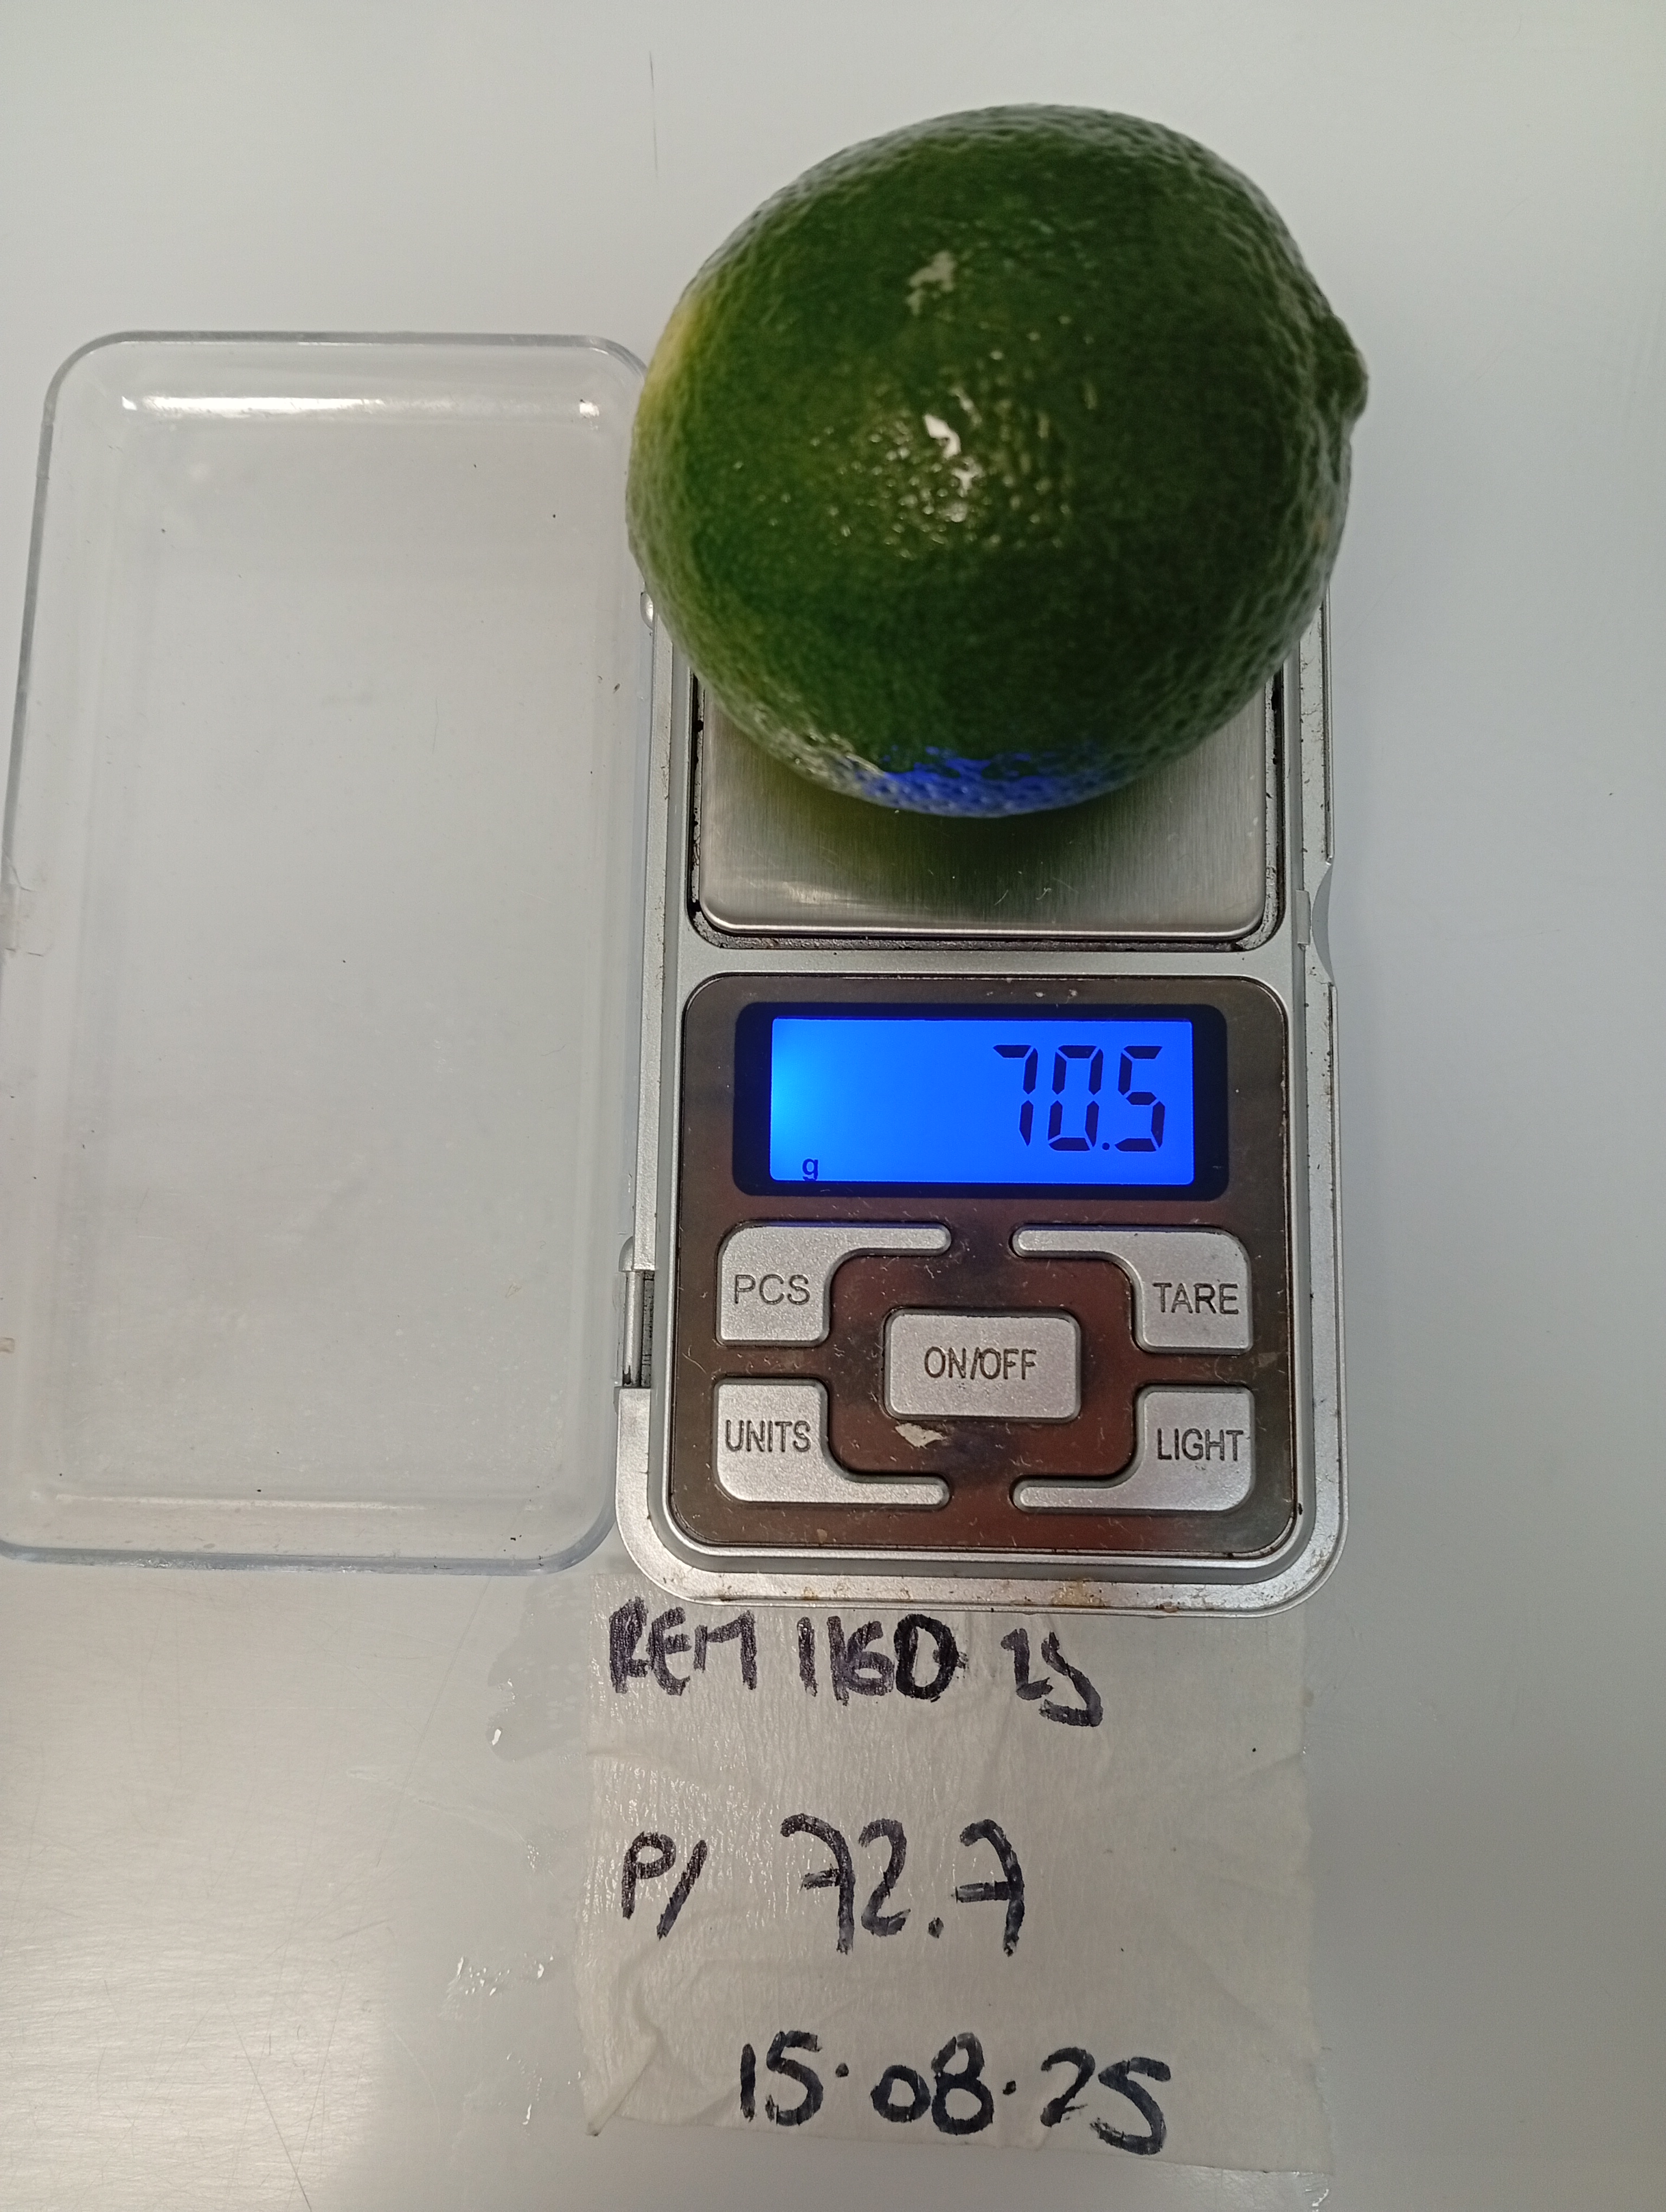 70.5
g
PCS
TARE
ON/OFF
UNITS
LIGHT
REM 1160 25
P/ 72.7
15.08.25